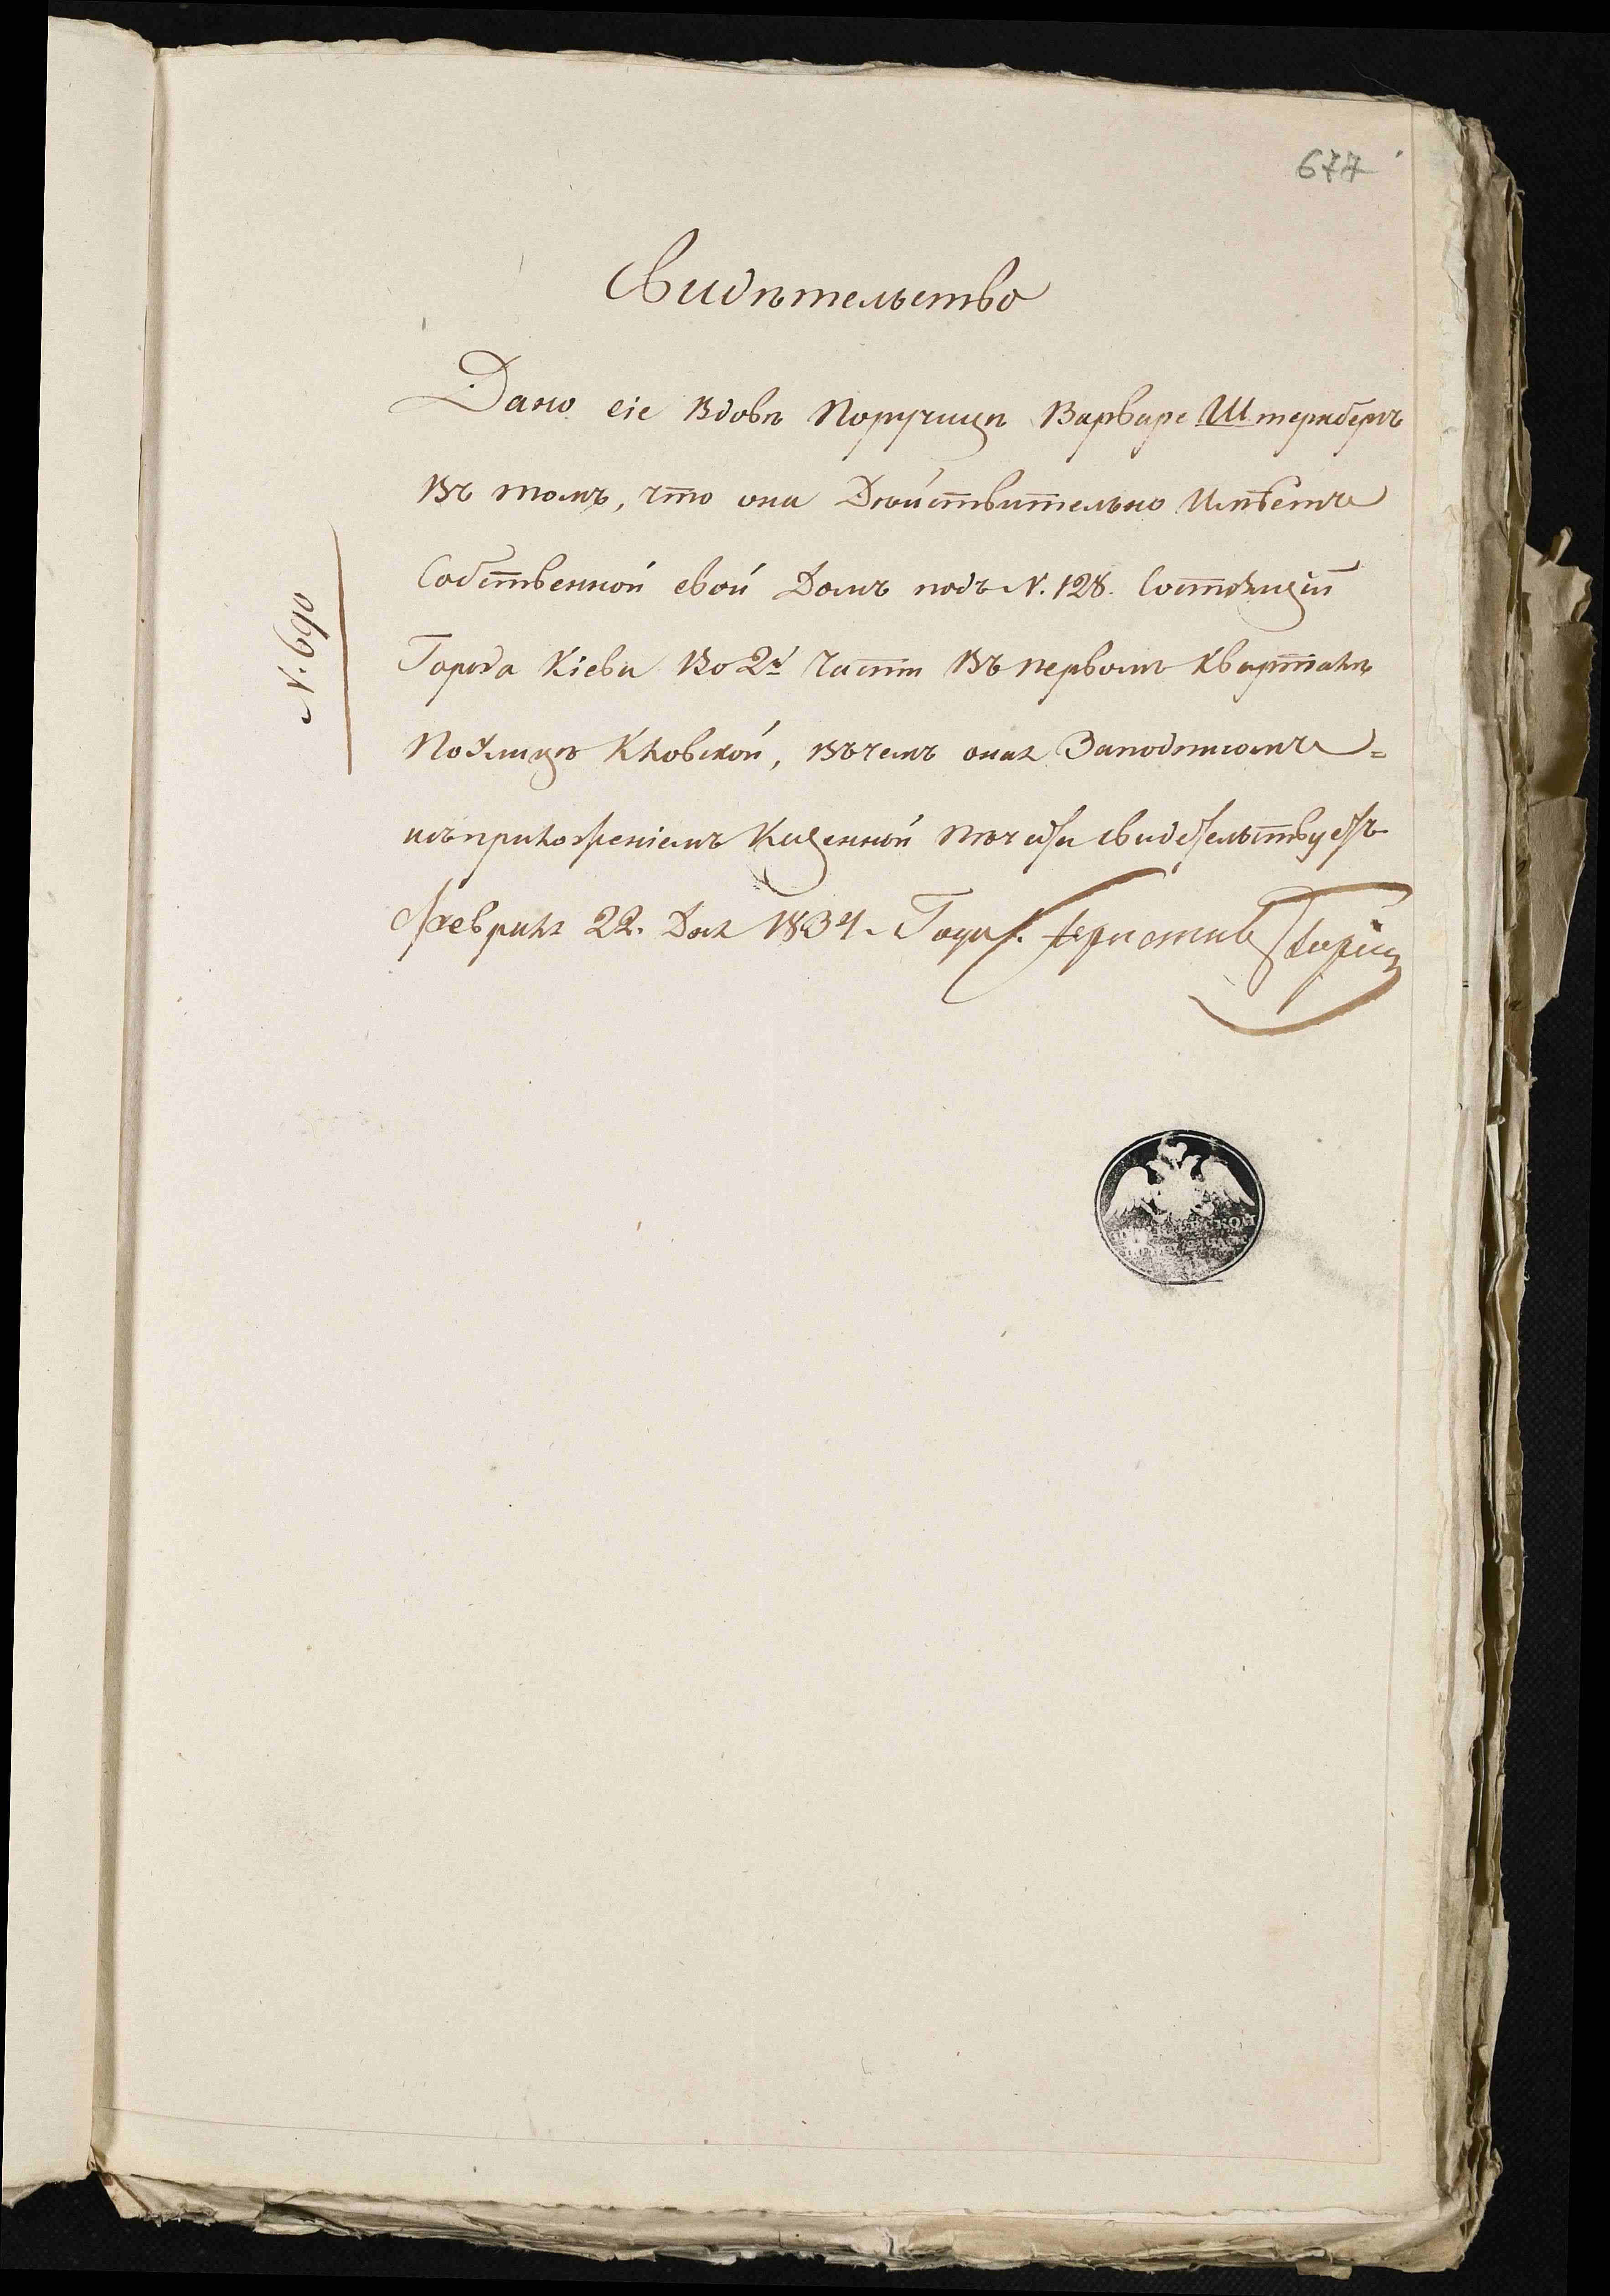 677
Свидѣтельство
Дано сіе Вдовѣ Поручицѣ Варваре Штернбергъ
Въ томъ, что она Дѣйствительно Имѣетъ
Собственной свой Домъ подъ N. 128. Состоящій
Города Кіева Во 2й Части Въ первомъ Кварталѣ
По Улицѣ Кловской, Въ чемъ оная За подписомъ =
и съ приложеніемъ Казенной Печати свидетельствуетъ
Февраля 22. Дня 1834. Года.
N. 690